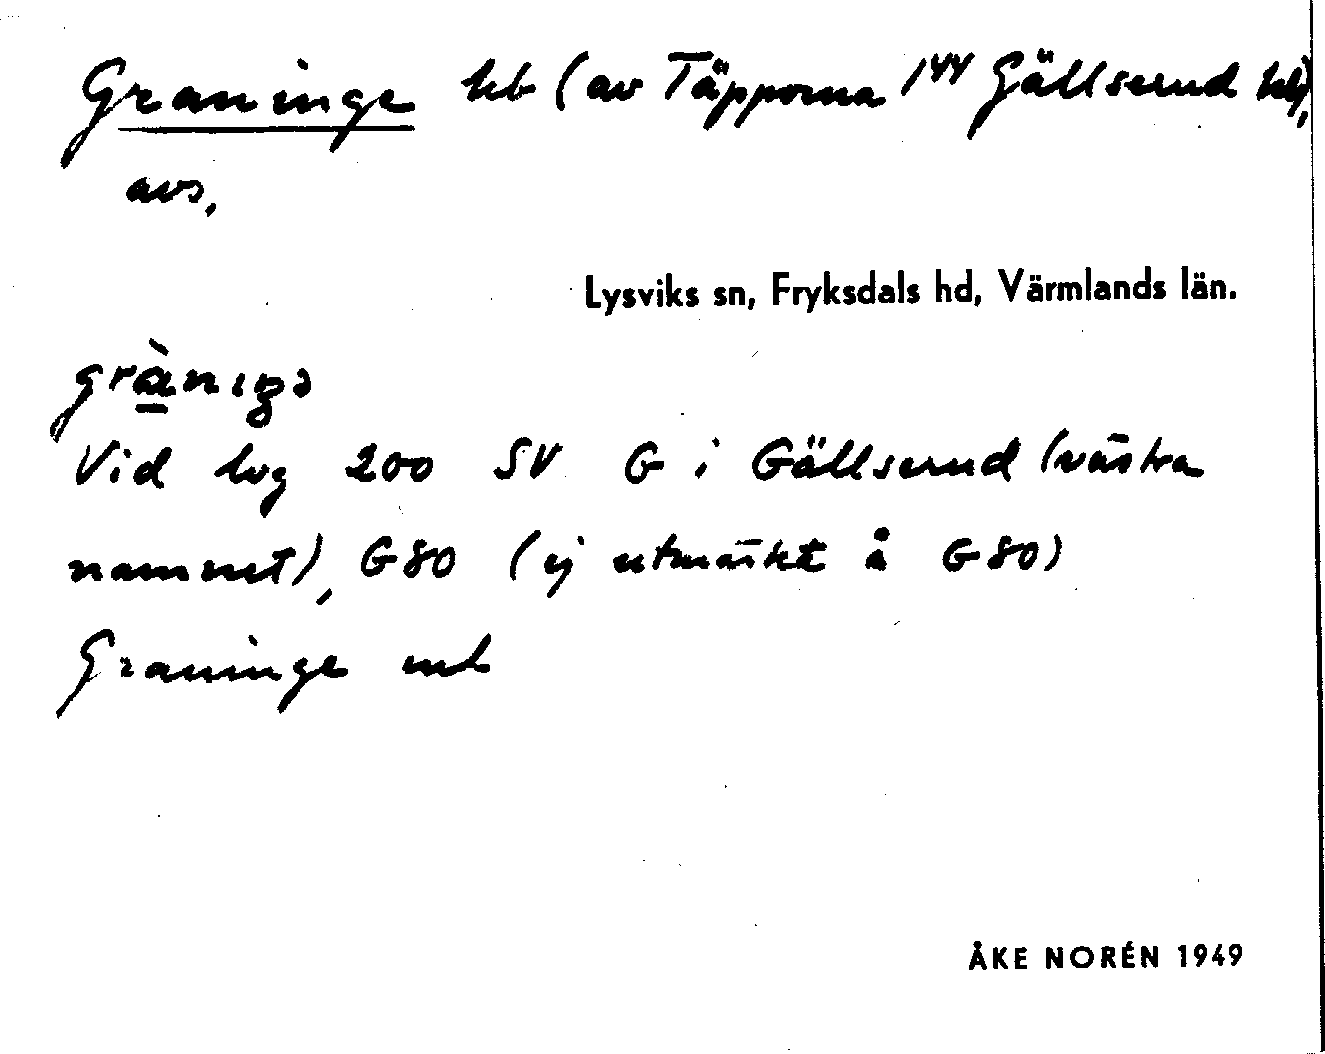 Graninge hb (av Täpporna 1⁴⁴ Gällserud hb),
avs.
Lysviks sn, Fryksdals hd, Värmlands län.
grànıŋə
Vid hvg 200 SV G i Gällserud (västra
namnet), G80 (ej utmärkt å G80)
Graninge mb
ÅKE NORÉN 1949